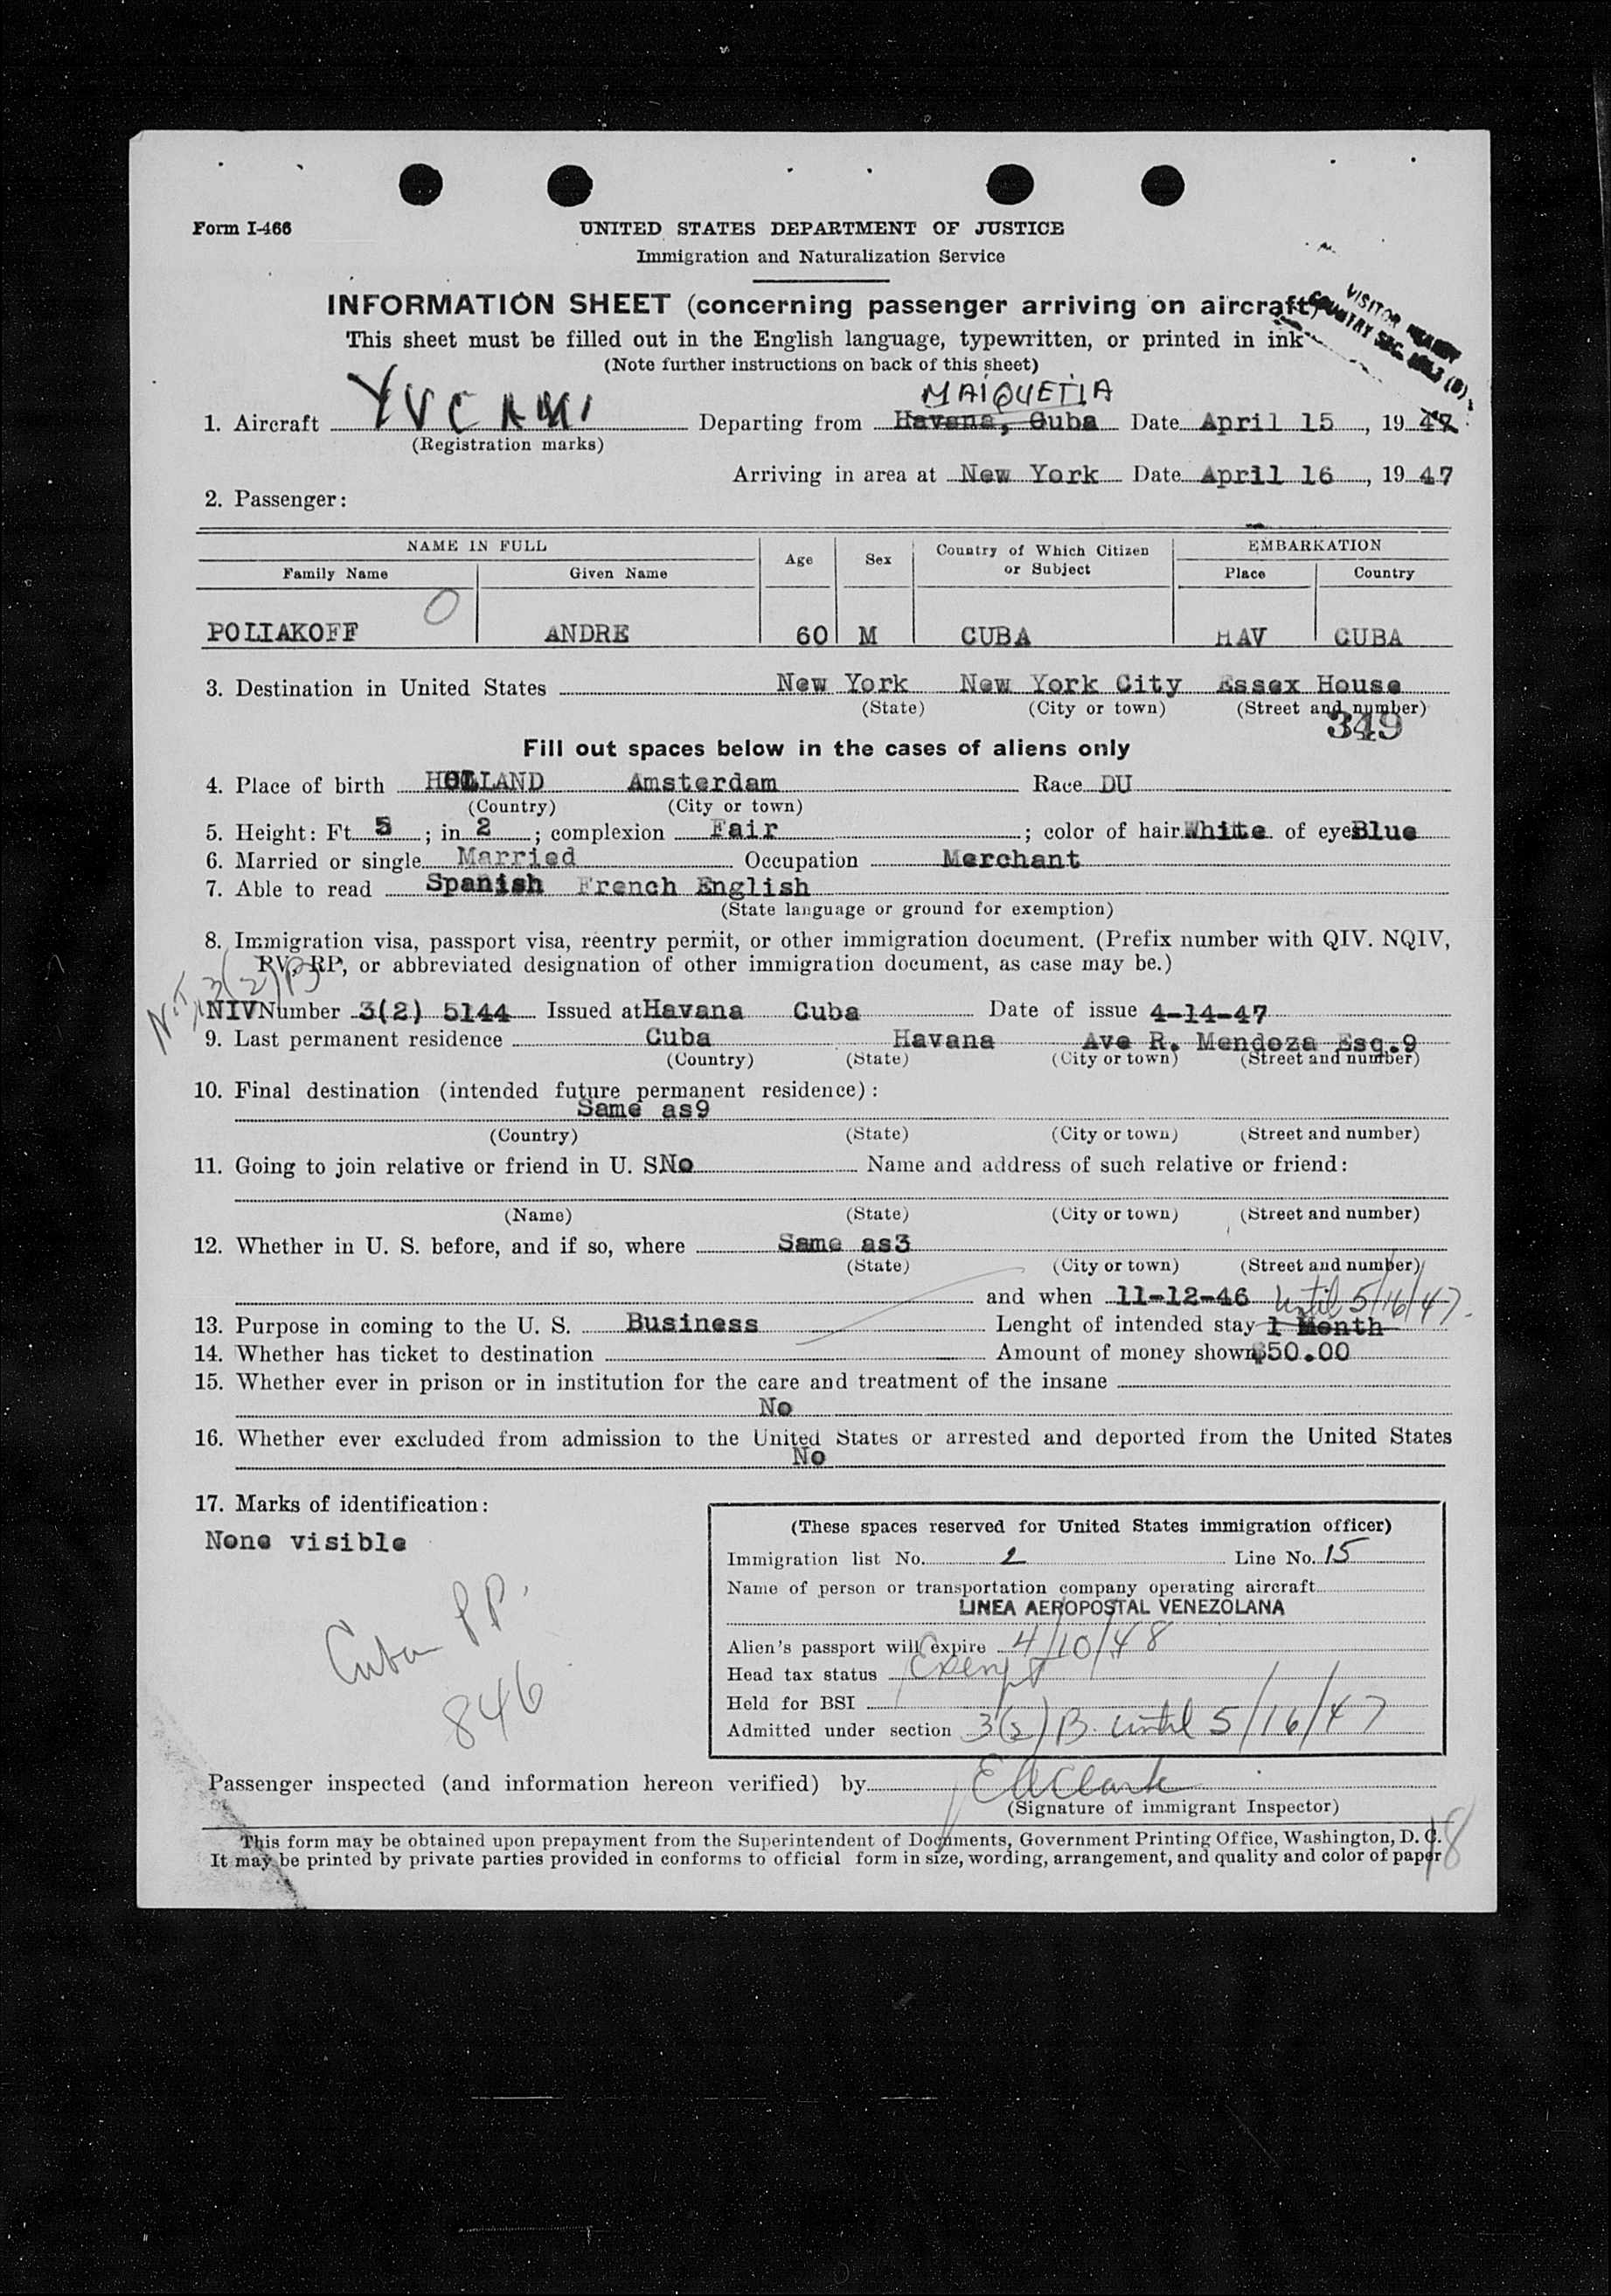 Form I-466
UNITED STATES DEPARTMENT OF JUSTICE
Immigration and Naturalization Service
INFORMATION SHEET (concerning passenger arriving on aircraft)
This sheet must be filled out in the English language, typewritten, or printed in ink
(Note further instructions on back of this sheet)
VISITOR
COUNTRY SEC.
MAIQUETIA
1. Aircraft Departing from Havana, Cuba Date April 15, 1947
(Registration marks)
Arriving in area at New York Date April 16, 1947
2. Passenger:
NAME IN FULL Age Sex Country of Which Citizen or Subject EMBARKATION
Family Name Given Name Place Country
O
POLIAKOFF ANDRE 60 M CUBA HAV CUBA
3. Destination in United States New York New York City Essex House
(State) (City or town) (Street and number)
349
Fill out spaces below in the cases of aliens only
4. Place of birth HOLLAND Amsterdam Race DU
(Country) (City or town)
5. Height: Ft. 5; in 2; complexion Fair; color of hair White of eye Blue
6. Married or single Married Occupation Merchant
7. Able to read Spanish French English
(State language or ground for exemption)
8. Immigration visa, passport visa, reentry permit, or other immigration document. (Prefix number with QIV. NQIV,
RV, RP, or abbreviated designation of other immigration document, as case may be.)
3(2)B
NIV Number 3(2) 5144 Issued at Havana Cuba Date of issue 4-14-47
9. Last permanent residence Cuba Havana Ave R. Mendoza Esq.9
(Country) (State) (City or town) (Street and number)
10. Final destination (intended future permanent residence):
Same as9
(Country) (State) (City or town) (Street and number)
11. Going to join relative or friend in U. S. No Name and address of such relative or friend:
(Name) (State) (City or town) (Street and number)
12. Whether in U. S. before, and if so, where Same as3
(State) (City or town) (Street and number)
and when 11-12-46 until 5/16/47.
13. Purpose in coming to the U. S. Business Lenght of intended stay 1 Month
14. Whether has ticket to destination Amount of money shown $50.00
15. Whether ever in prison or in institution for the care and treatment of the insane
No
16. Whether ever excluded from admission to the United States or arrested and deported from the United States
No
17. Marks of identification:
None visible
Cuban P.P.
846
(These spaces reserved for United States immigration officer)
Immigration list No. 2 Line No. 15
Name of person or transportation company operating aircraft
LINEA AEROPOSTAL VENEZOLANA
Alien's passport will expire 4/10/48
Head tax status Exempt
Held for BSI
Admitted under section 3(2) B. until 5/16/47
Passenger inspected (and information hereon verified) by E A Clark
(Signature of immigrant Inspector)
This form may be obtained upon prepayment from the Superintendent of Documents, Government Printing Office, Washington, D. C.
It may be printed by private parties provided in conforms to official form in size, wording, arrangement, and quality and color of paper
18